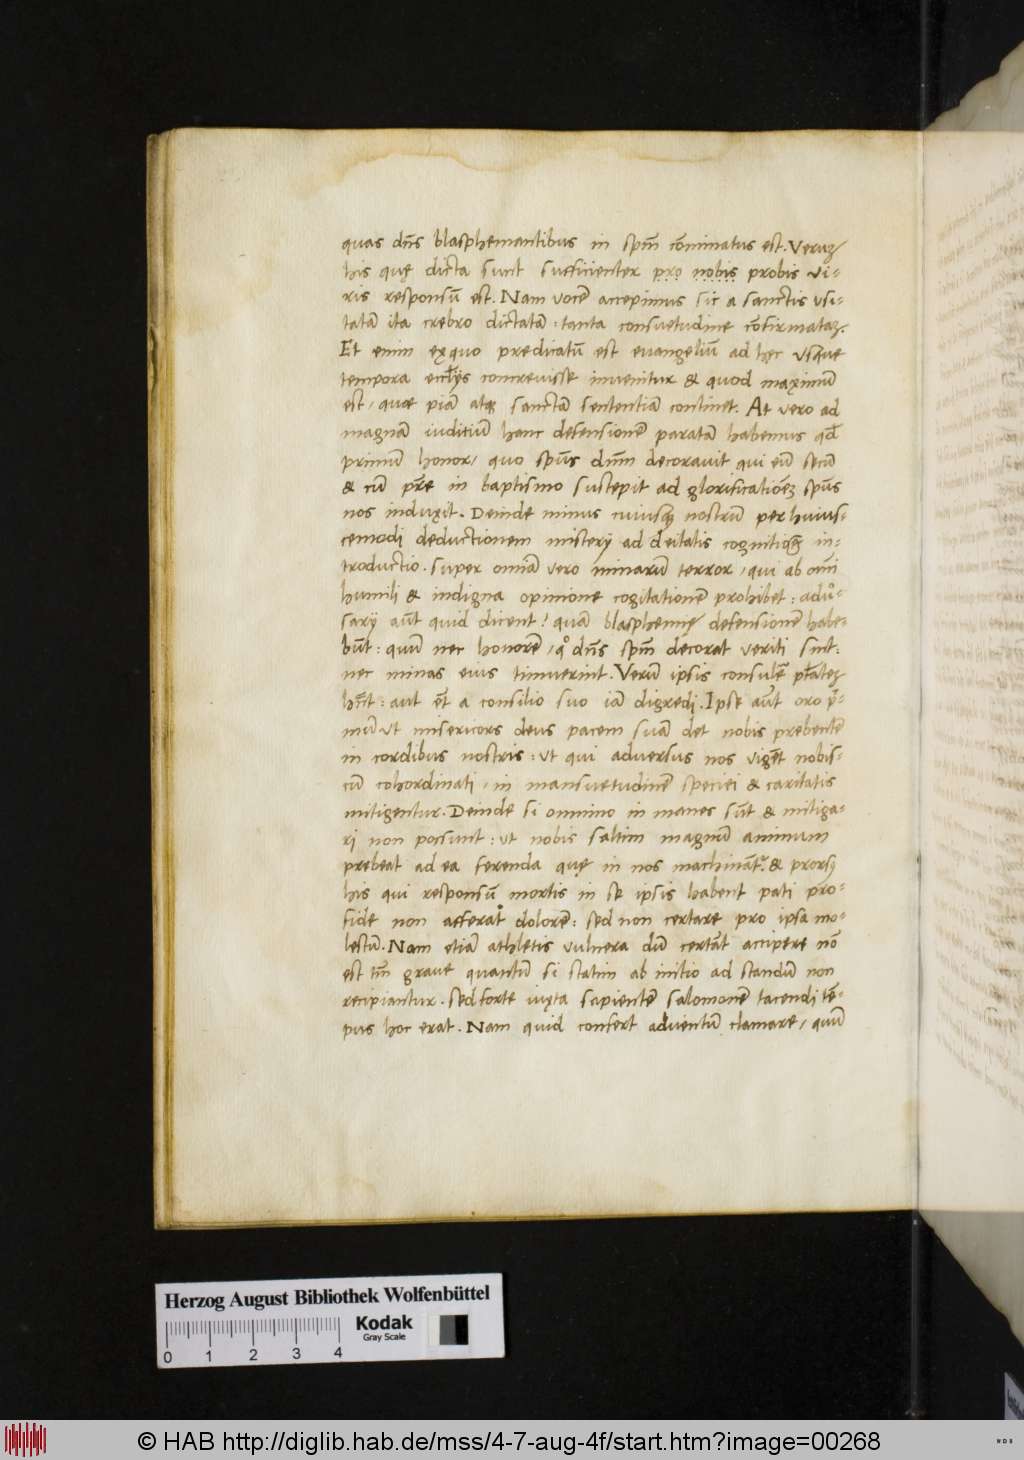 quas dn̄s blasphemantibus in spm̄ cōminatus est. Veruꝫ
his quę dicta sunt sufficienter pro nobis probis vi-
ris responsū est. Nam vocē accepimus sic a sanctis usi-
tatā ita crebro dictatā: tanta consuetudine cōfirmataꝫ.
Et enim exquo predicatū est evangeliū ad hęc usque
tempora eccl̄ijs concrevisse invenitur & quod maximū
est, quae piā atqꝫ sanctā sententiā continet. At vero ad
magnā iuditiū hanc defensionē paratā habemus qđ
primū honor, quo spūs dn̄m decoravit qui eū secū
& cū pr̄e in baptismo suscepit ad glorificationēꝫ spūs
nos induxit. Deinde minus cuiusqꝫ nostrū per huius-
cemodi deductionem misterij ad deitatis cognitionē in-
troductio. super omīa vero minarū terror, qui ab om̄i
humili & indigna opinione cogitationē prohibet: adū-
sarij aūt quid dicent? quā blasphemię defensionē habe-
būt: quū nec honorē, qͦ dn̄s spm̄ decorat veriti sint:
nec minas eius timuerint. Verū ipsis consulē ptātēꝫ
hn̄t: aut ēt a consilio suo iā digredi. Ipse aūt oro pͥ-
mū ut misericors deus pacem suā det nobis prebentē
in cordibus nostris: ut qui adversus nos vigēt nobis-
cū cohordinati, in mansuetudinē speciei & caritatis
mitigentur. Deinde si omnino in manes sūt & mitiga-
ri non possunt: ut nobis saltim magnū animum
prebeat ad ea ferenda quę in nos machināt᷑. & prorsꝫ
his qui responsū mortis in se ipsis habent pati pro-
fide non afferat dolorē: sed non certare pro ipsa mo-
lestū. Nam etiā athletis vulnera dū certāt accipere nō
est tm̄ grave quantū si statim ab initio ad standū non
recipiantur. sed forte iuxta sapientē salomonē tacendi tē-
pus hoc erat. Nam quid confert adventū clamare, quū
Herzog August Bibliothek Wolfenbüttel
0 1 2 3 4
Kodak
Gray Scale
© HAB http://diglib.hab.de/mss/4-7-aug-4f/start.htm?image=00268